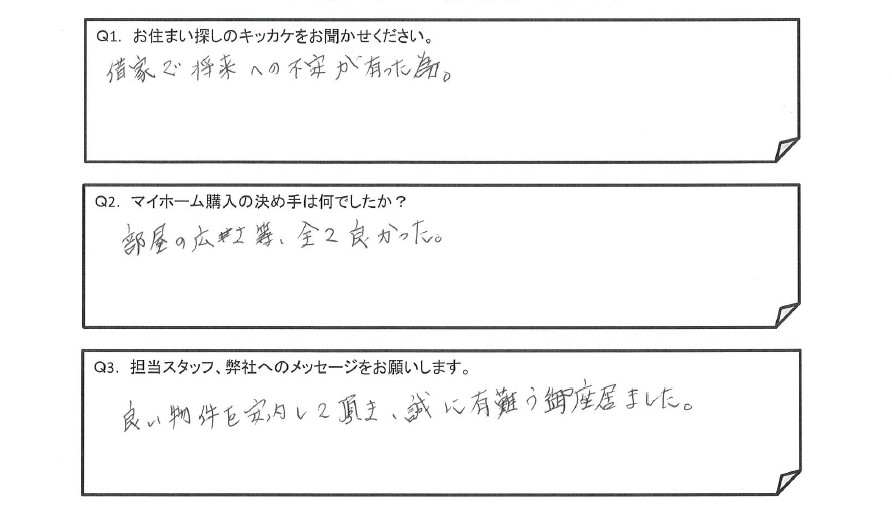 Q1. お住まい探しのキッカケをお聞かせください。
借家で将来への不安が有った為。
Q2. マイホーム購入の決め手は何でしたか？
部屋の広さ等、全て良かった。
Q3. 担当スタッフ、弊社へのメッセージをお願いします。
良い物件を案内して頂き、誠に有難う御座居ました。